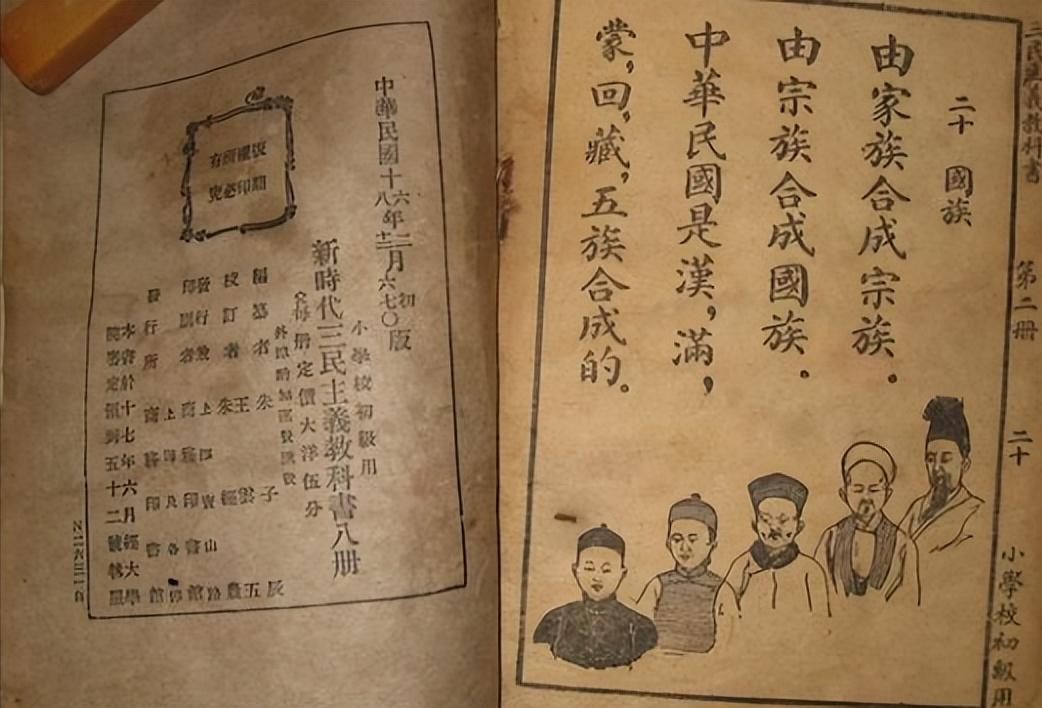 三民主義教科書
第二册
二十
小學校初級用
二十 國族
由家族合成宗族.
由宗族合成國族.
中華民國是漢,滿,
蒙,回,藏,五族合成的.
中華民國十六年二月初版
小學校初級用
新時代三民主義教科書八册
册定價大洋伍分
編纂者
校訂者
發行
印刷者
發行所
商務印書館
本書於十七年六月經大學
院審定領到五十二號執照
版權所有
翻印必究